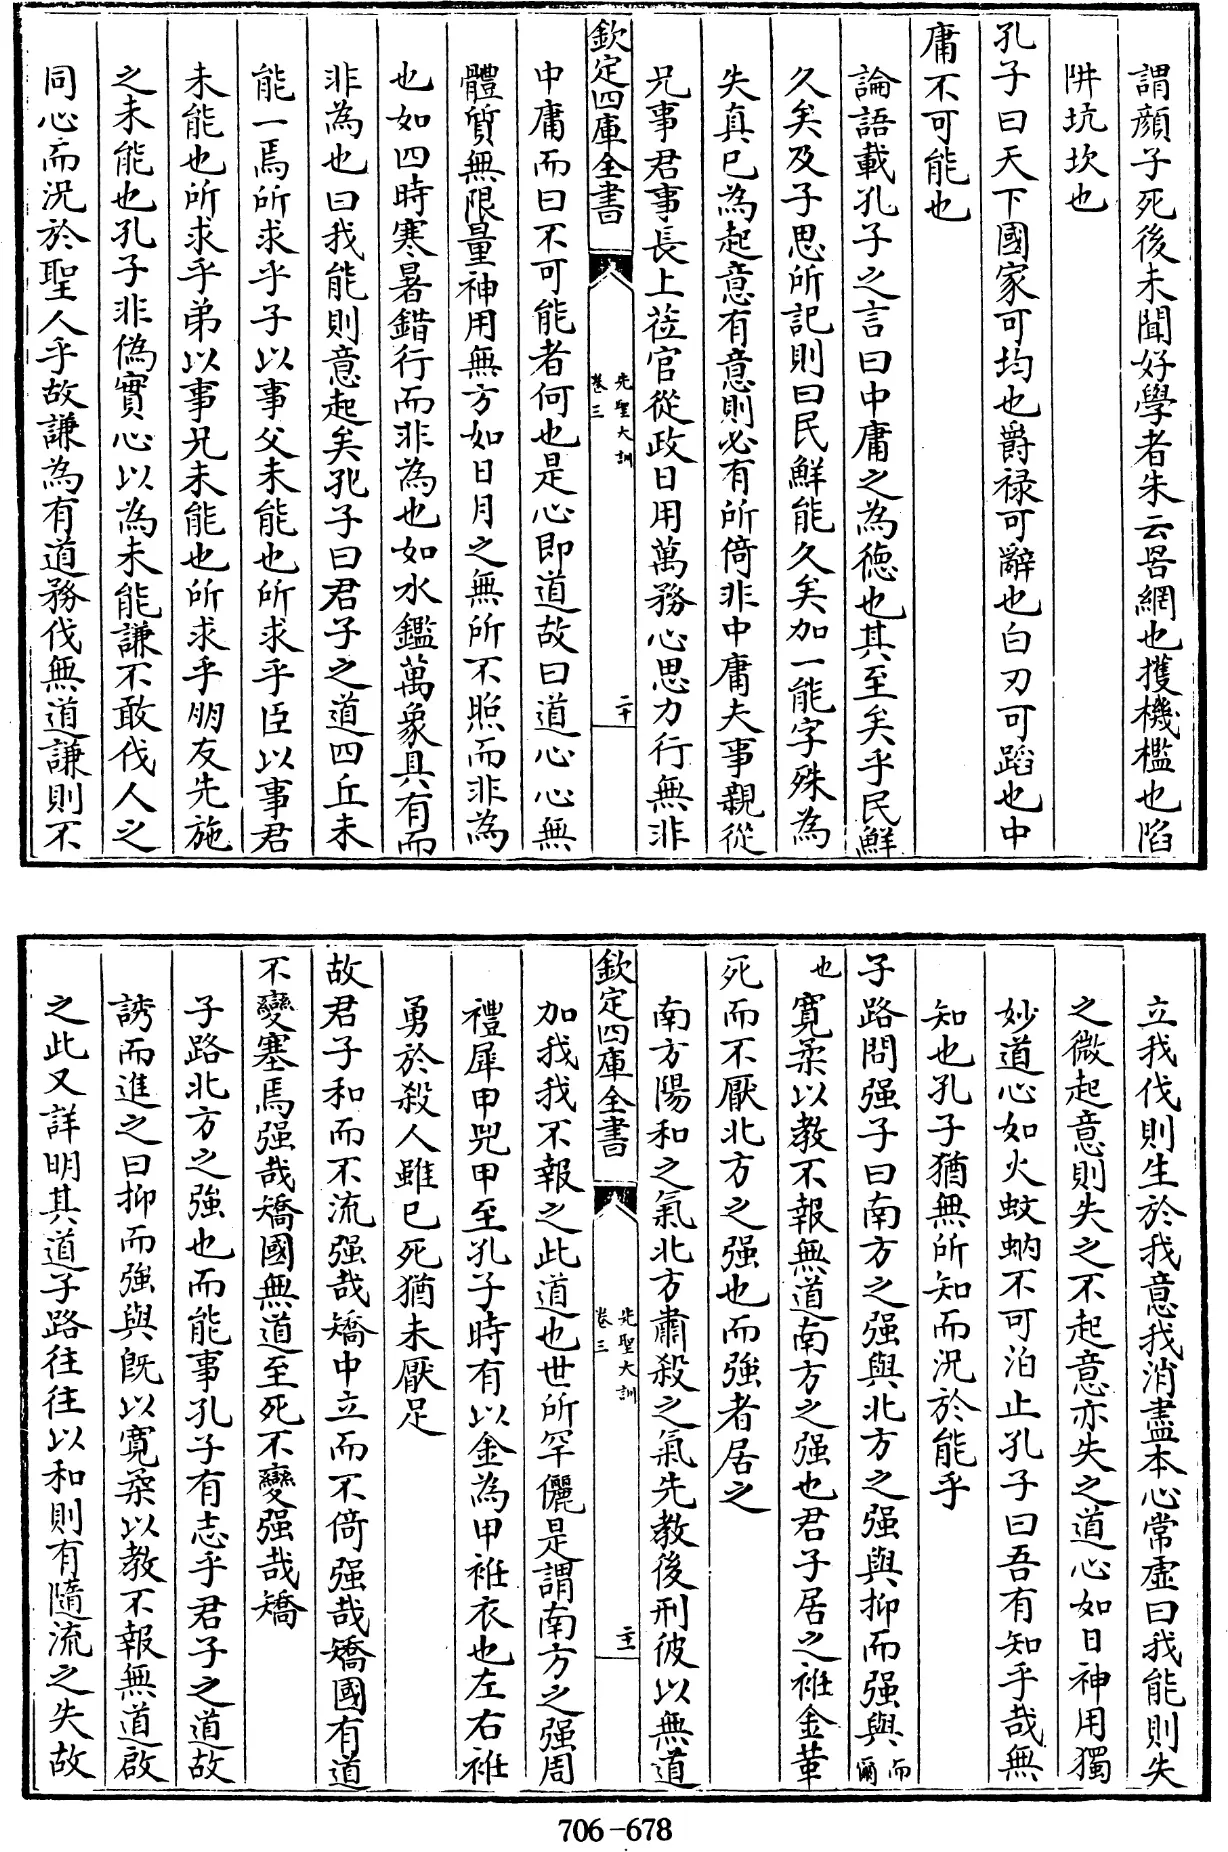 謂顔子死後未聞好學者朱云罟網也擭機檻也陷
阱坑坎也
孔子曰天下國家可均也爵禄可辭也白刃可蹈也中
庸不可能也
論語載孔子之言曰中庸之為徳也其至矣乎民鮮
久矣及子思所記則曰民鮮能久矣加一能字殊為
失真已為起意有意則必有所倚非中庸夫事親從
兄事君事長上莅官從政日用萬務心思力行無非
欽定四庫全書
先聖大訓
卷三
二十
中庸而曰不可能者何也是心即道故曰道心心無
體質無限量神用無方如日月之無所不照而非為
也如四時寒暑錯行而非為也如水鑑萬象具有而
非為也曰我能則意起矣孔子曰君子之道四丘未
能一焉所求乎子以事父未能也所求乎臣以事君
未能也所求乎弟以事兄未能也所求乎朋友先施
之未能也孔子非偽實心以為未能謙不敢伐人之
同心而況於聖人乎故謙為有道務伐無道謙則不
立我伐則生於我意我消盡本心常虚曰我能則失
之微起意則失之不起意亦失之道心如日神用獨
妙道心如火蚊蚋不可泊止孔子曰吾有知乎哉無
知也孔子猶無所知而況於能乎
子路問强子曰南方之强與北方之强與抑而强與而爾
也寛柔以教不報無道南方之强也君子居之袵金革
死而不厭北方之强也而強者居之
南方陽和之氣北方肅殺之氣先教後刑彼以無道
欽定四庫全書
先聖大訓
卷三
二十一
加我我不報之此道也世所罕儷是謂南方之强周
禮犀甲兕甲至孔子時有以金為甲袵衣也左右袵
勇於殺人雖已死猶未厭足
故君子和而不流强哉矯中立而不倚强哉矯國有道
不變塞焉强哉矯國無道至死不變强哉矯
子路北方之強也而能事孔子有志乎君子之道故
誘而進之曰抑而強與既以寛柔以教不報無道啟
之此又詳明其道子路往往以和則有隨流之失故
706-678